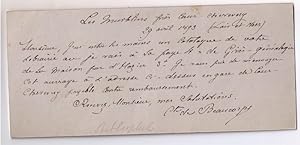 Les Murblins par Cour Cheverny
29 avril 1893 (Loir et Cher)
Monsieur, J'ai entre les mains un Catalogue de votre
Librairie où je vois à la page 4
généalogie
de la Maison par d'Hozier 3f Je vous prie de m'envoyer
cet ouvrage à l'adresse ci-dessus en gare de Cour-
Cheverny payable contre remboursement.
Recevez, Monsieur, mes Salutations.
Cte de Beaucorps